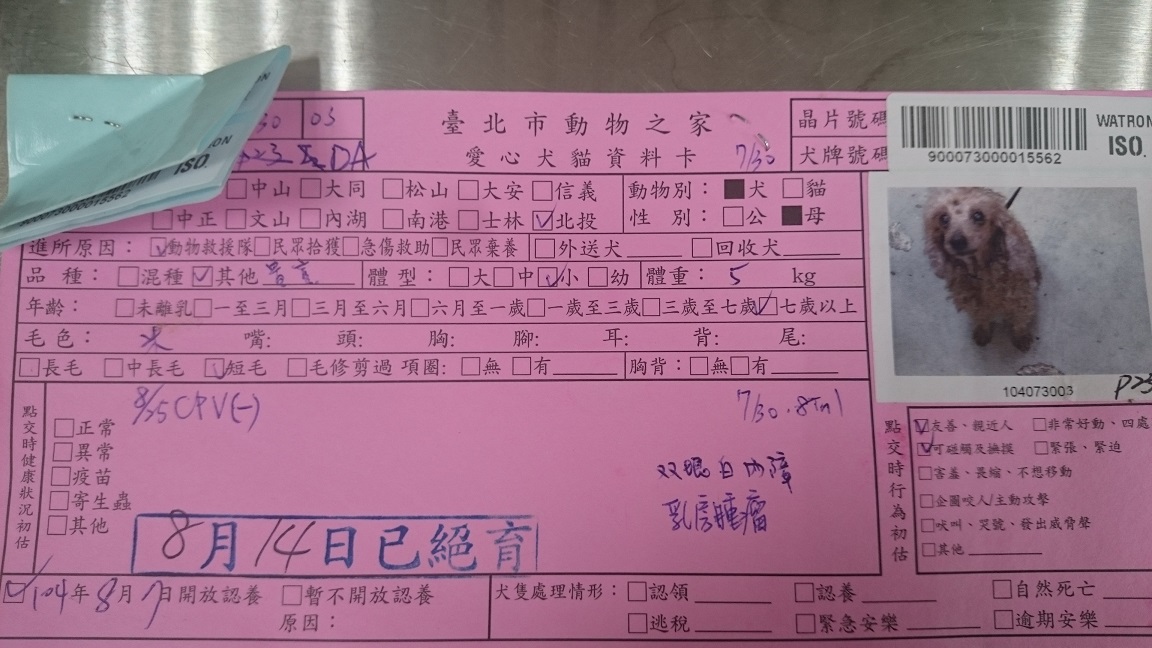 臺北市動物之家
愛心犬貓資料卡 7/30
晶片號碼
犬牌號碼
WATRON
ISO.
900073000015562
30 03
DA
ISO.
□中山 □大同 □松山 □大安 □信義 動物別：■犬 □貓
□中正 □文山 □內湖 □南港 □士林 ☑北投 性別：□公 ■母
進所原因：☑動物救援隊 □民眾拾獲 □急傷救助 □民眾棄養 □外送犬 □回收犬
品種：□混種 ☑其他 貴賓 體型：□大 □中 ☑小 □幼 體重：5 kg
年齡：□未離乳 □一至三月 □三月至六月 □六月至一歲 □一歲至三歲 □三歲至七歲 ☑七歲以上
毛色：米 嘴： 頭： 胸： 腳： 耳： 背： 尾：
□長毛 □中長毛 ☑短毛 □毛修剪過 項圈：□無 □有 胸背：□無 □有
104073003
點交時健康狀況初估
8/25 CPV(-)
□正常
□異常
□疫苗
□寄生蟲
□其他
7/30
双眼白內障
乳房腫瘤
8月14日已絕育
點交時行為初估
☑友善、親近人 □非常好動、四處
☑可碰觸及撫摸 □緊張、緊迫
□害羞、畏縮、不想移動
□企圖咬人/主動攻擊
□吠叫、哭號、發出威脅聲
□其他
☑104年8月7日開放認養 □暫不開放認養
原因：
犬隻處理情形：□認領 □認養 □自然死亡
□逃稅 □緊急安樂 □逾期安樂